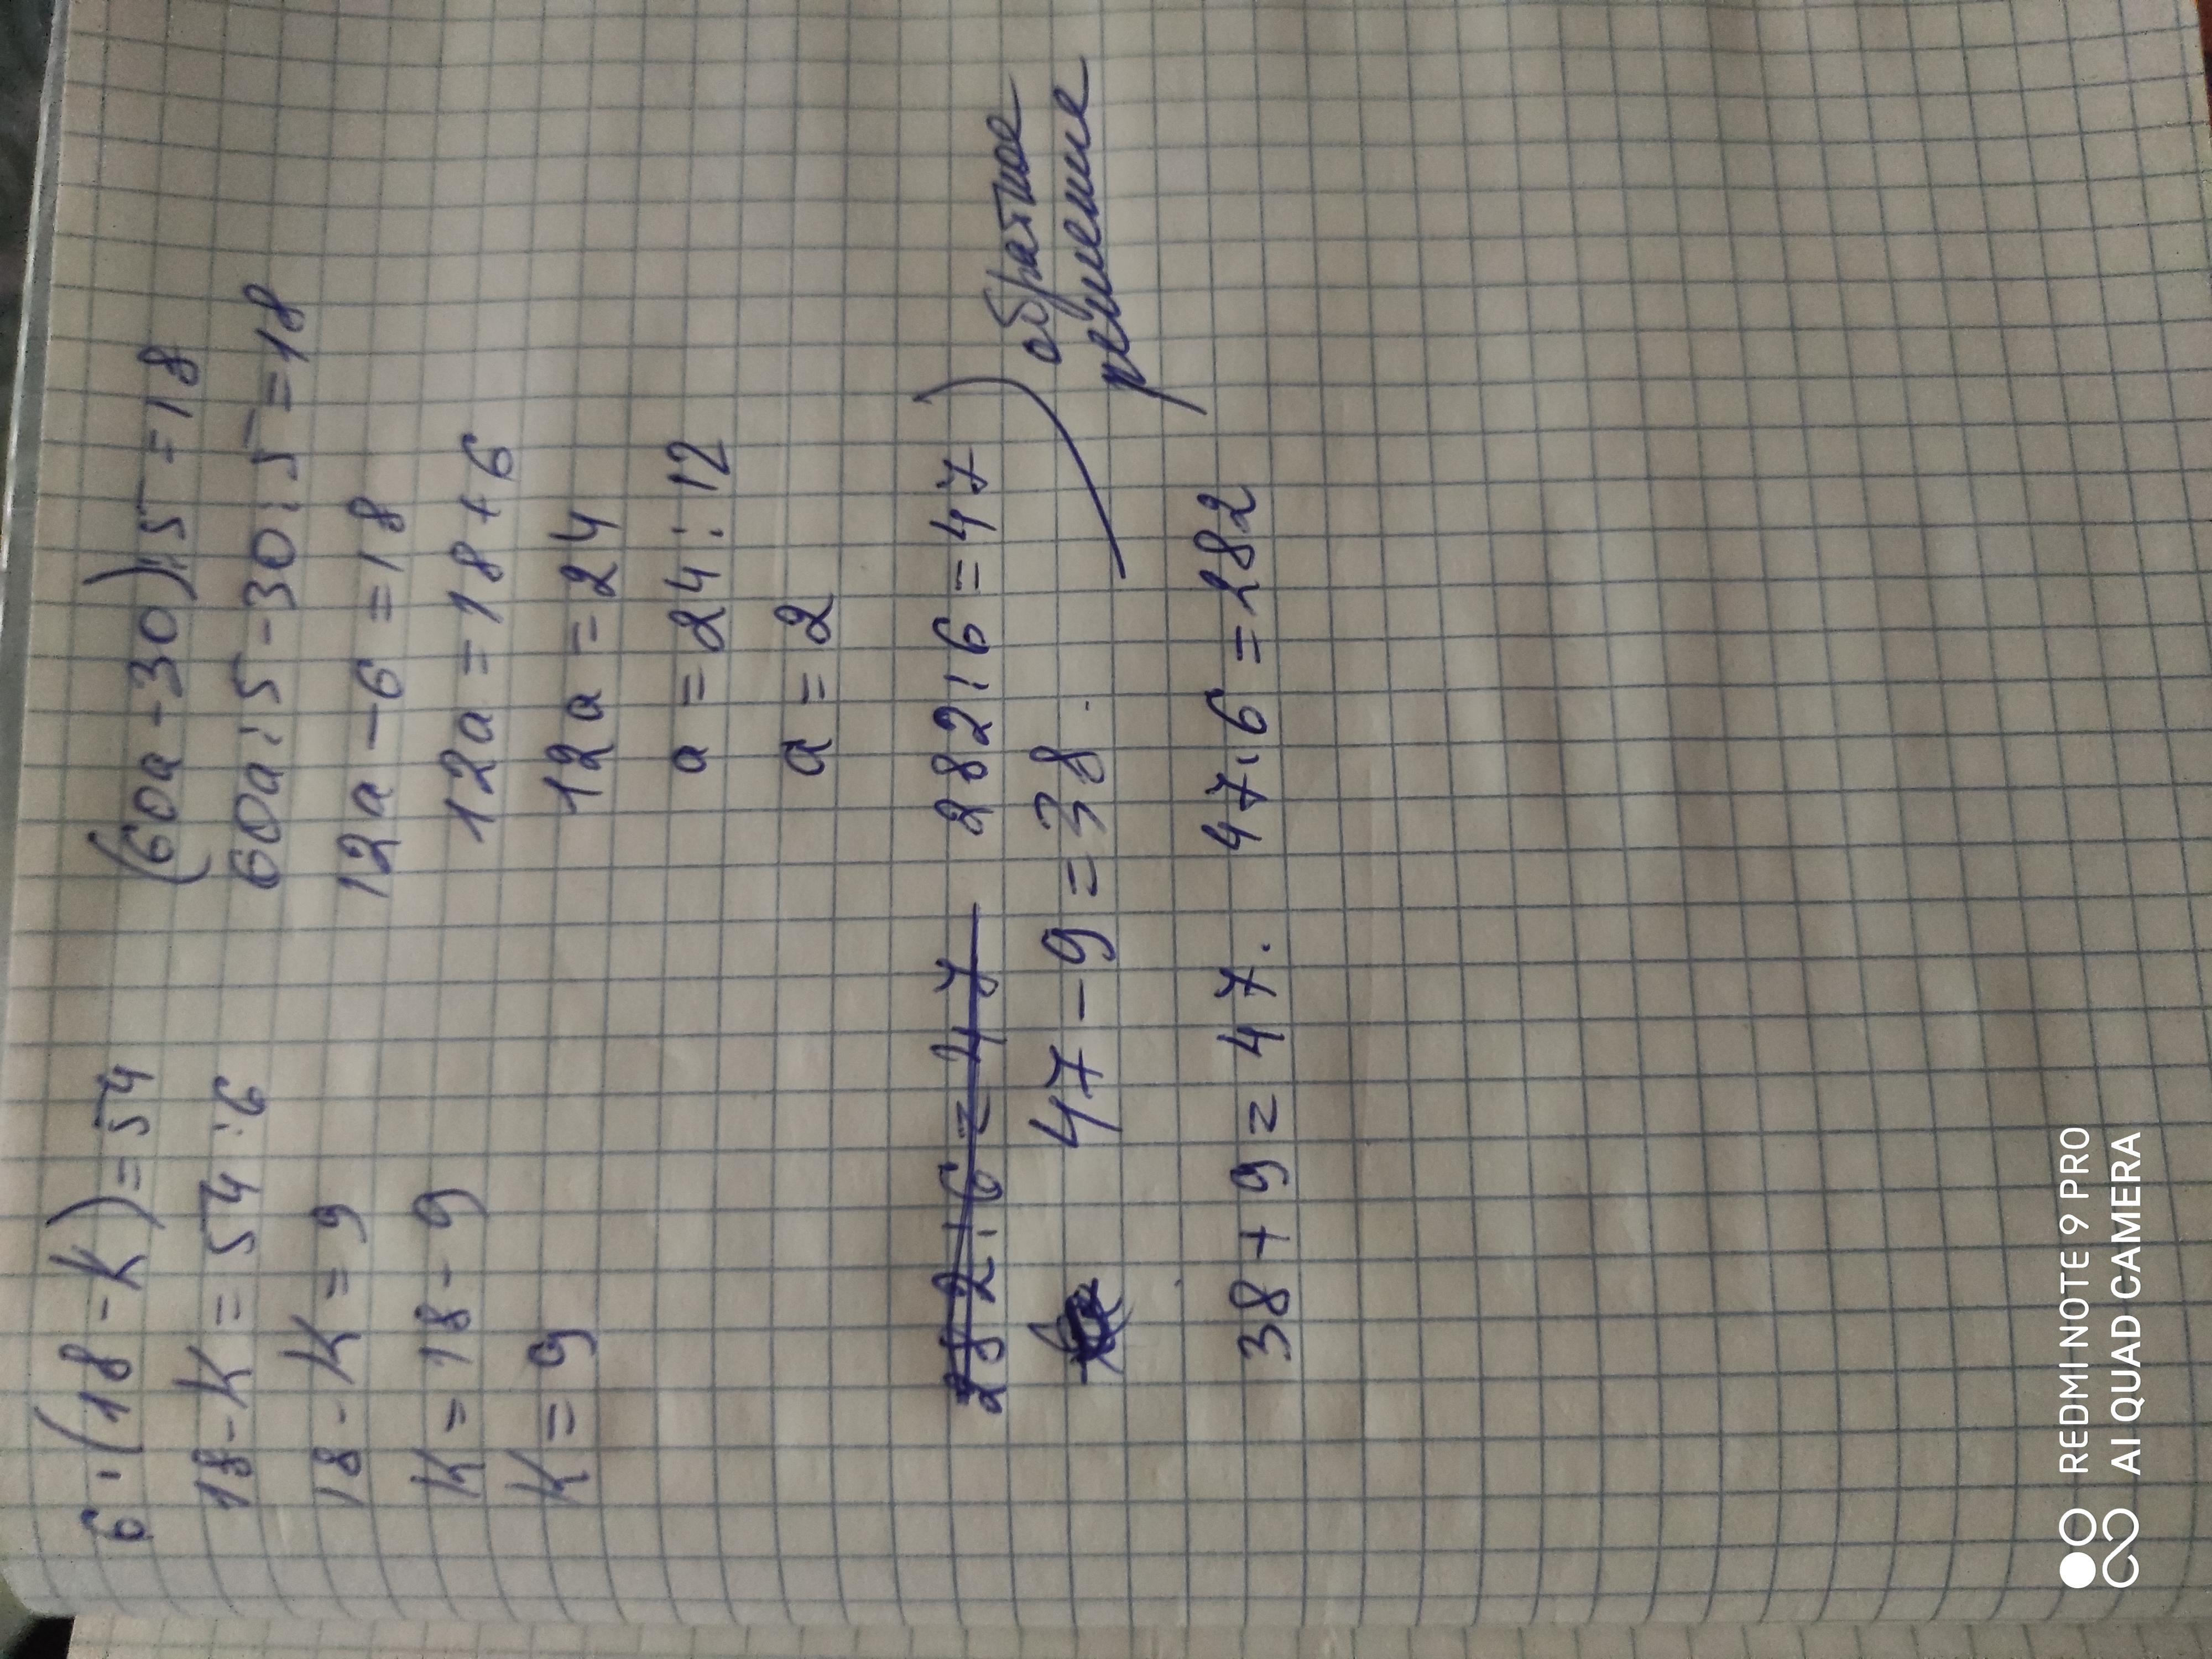 6·(18-К)=54
18-К=54:6
18-К=9
К=18-9
К=9
(60а-30):5=18
60а:5-30:5=18
12а-6=18
12а=18+6
12а=24
а=24:12
а=2
282:6=47
282:6=47
47-9=38.
обратное
решение
38+9=47. 47·6=282
REDMI NOTE 9 PRO
AI QUAD CAMERA